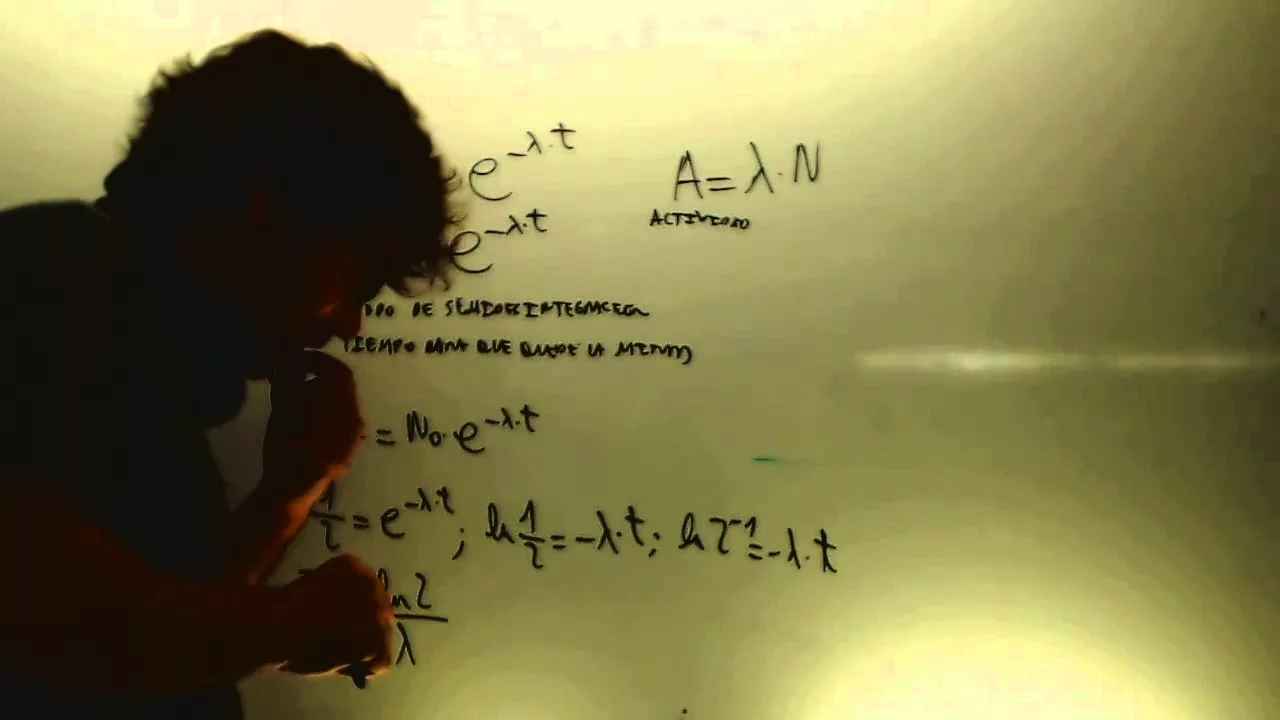 e^{-λ·t} A = λ·N
ACTIVIDAD
e^{-λ·t}
DE SEMIDESINTEGRACION
TIEMPO PARA QUE QUEDE LA MITAD
= N₀·e^{-λ·t}
1/2 = e^{-λ·t} ; ln 1/2 = -λ·t ; ln 2^{-1} = -λ·t
ln 2 / λ